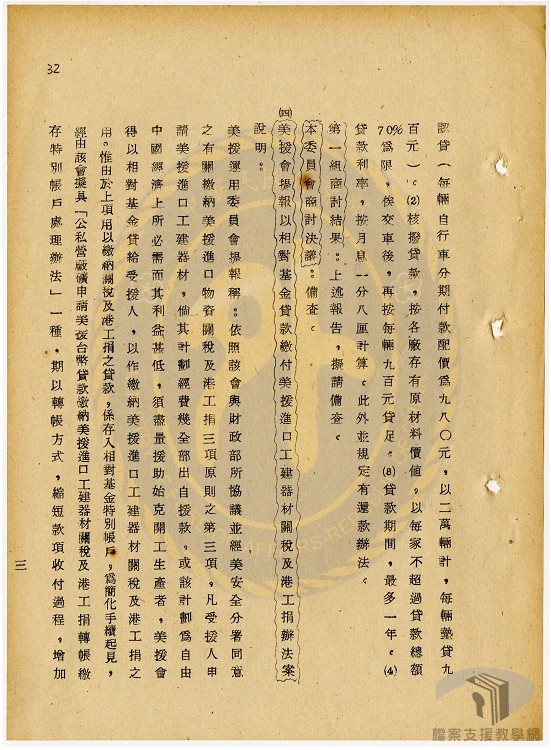 32
認貸(每輛自行車分期付款配價爲九八〇元,以二萬輛計,每輛墊貸九
百元)。(2)核撥貸款,按各廠存有原材料價値,以每家不超過貸款總額
70%爲限,俟交車後,再按每輛九百元貸足。(3)貸款期間,最多一年。(4)
貸款利率,按月息一分八厘計算。此外並規定有還款辦法。
第一組商討結果。上述報告,擬請備查。
本委員會商討決議。備查。
㈣美援會提報以相對基金貸款繳付美援進口工建器材關稅及港工捐辦法案
說明:
美援運用委員會提報稱:依照該會與財政部所協議並經美安全分署同意
之有關繳納美援進口物資關稅及港工捐三項原則之第三項,凡受援人申
請美援進口工建器材,倘其計劃經費幾全部出自援款,或該計劃爲自由
中國經濟上所必需而其利益甚低,須盡量援助始克開工生產者,美援會
得以相對基金貸給受援人,以作繳納美援進口工建器材關稅及港工捐之
用。惟由於上項用以繳納關稅及港工捐之貸款,係存入相對基金特別帳戶,爲簡化手續起見,
經由該會擬具「公私營廠礦申請美援台幣貸款繳納美援進口工建器材關稅及港工捐轉帳繳
存特別帳戶處理辦法」一種,期以轉帳方式,縮短款項收付過程,增加
三
檔案支援教學網